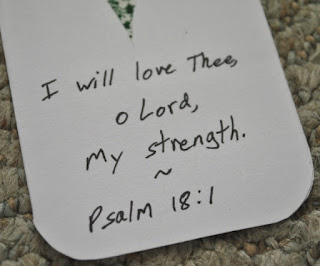 I will love Thee,
O Lord,
my strength.
~
Psalm 18:1